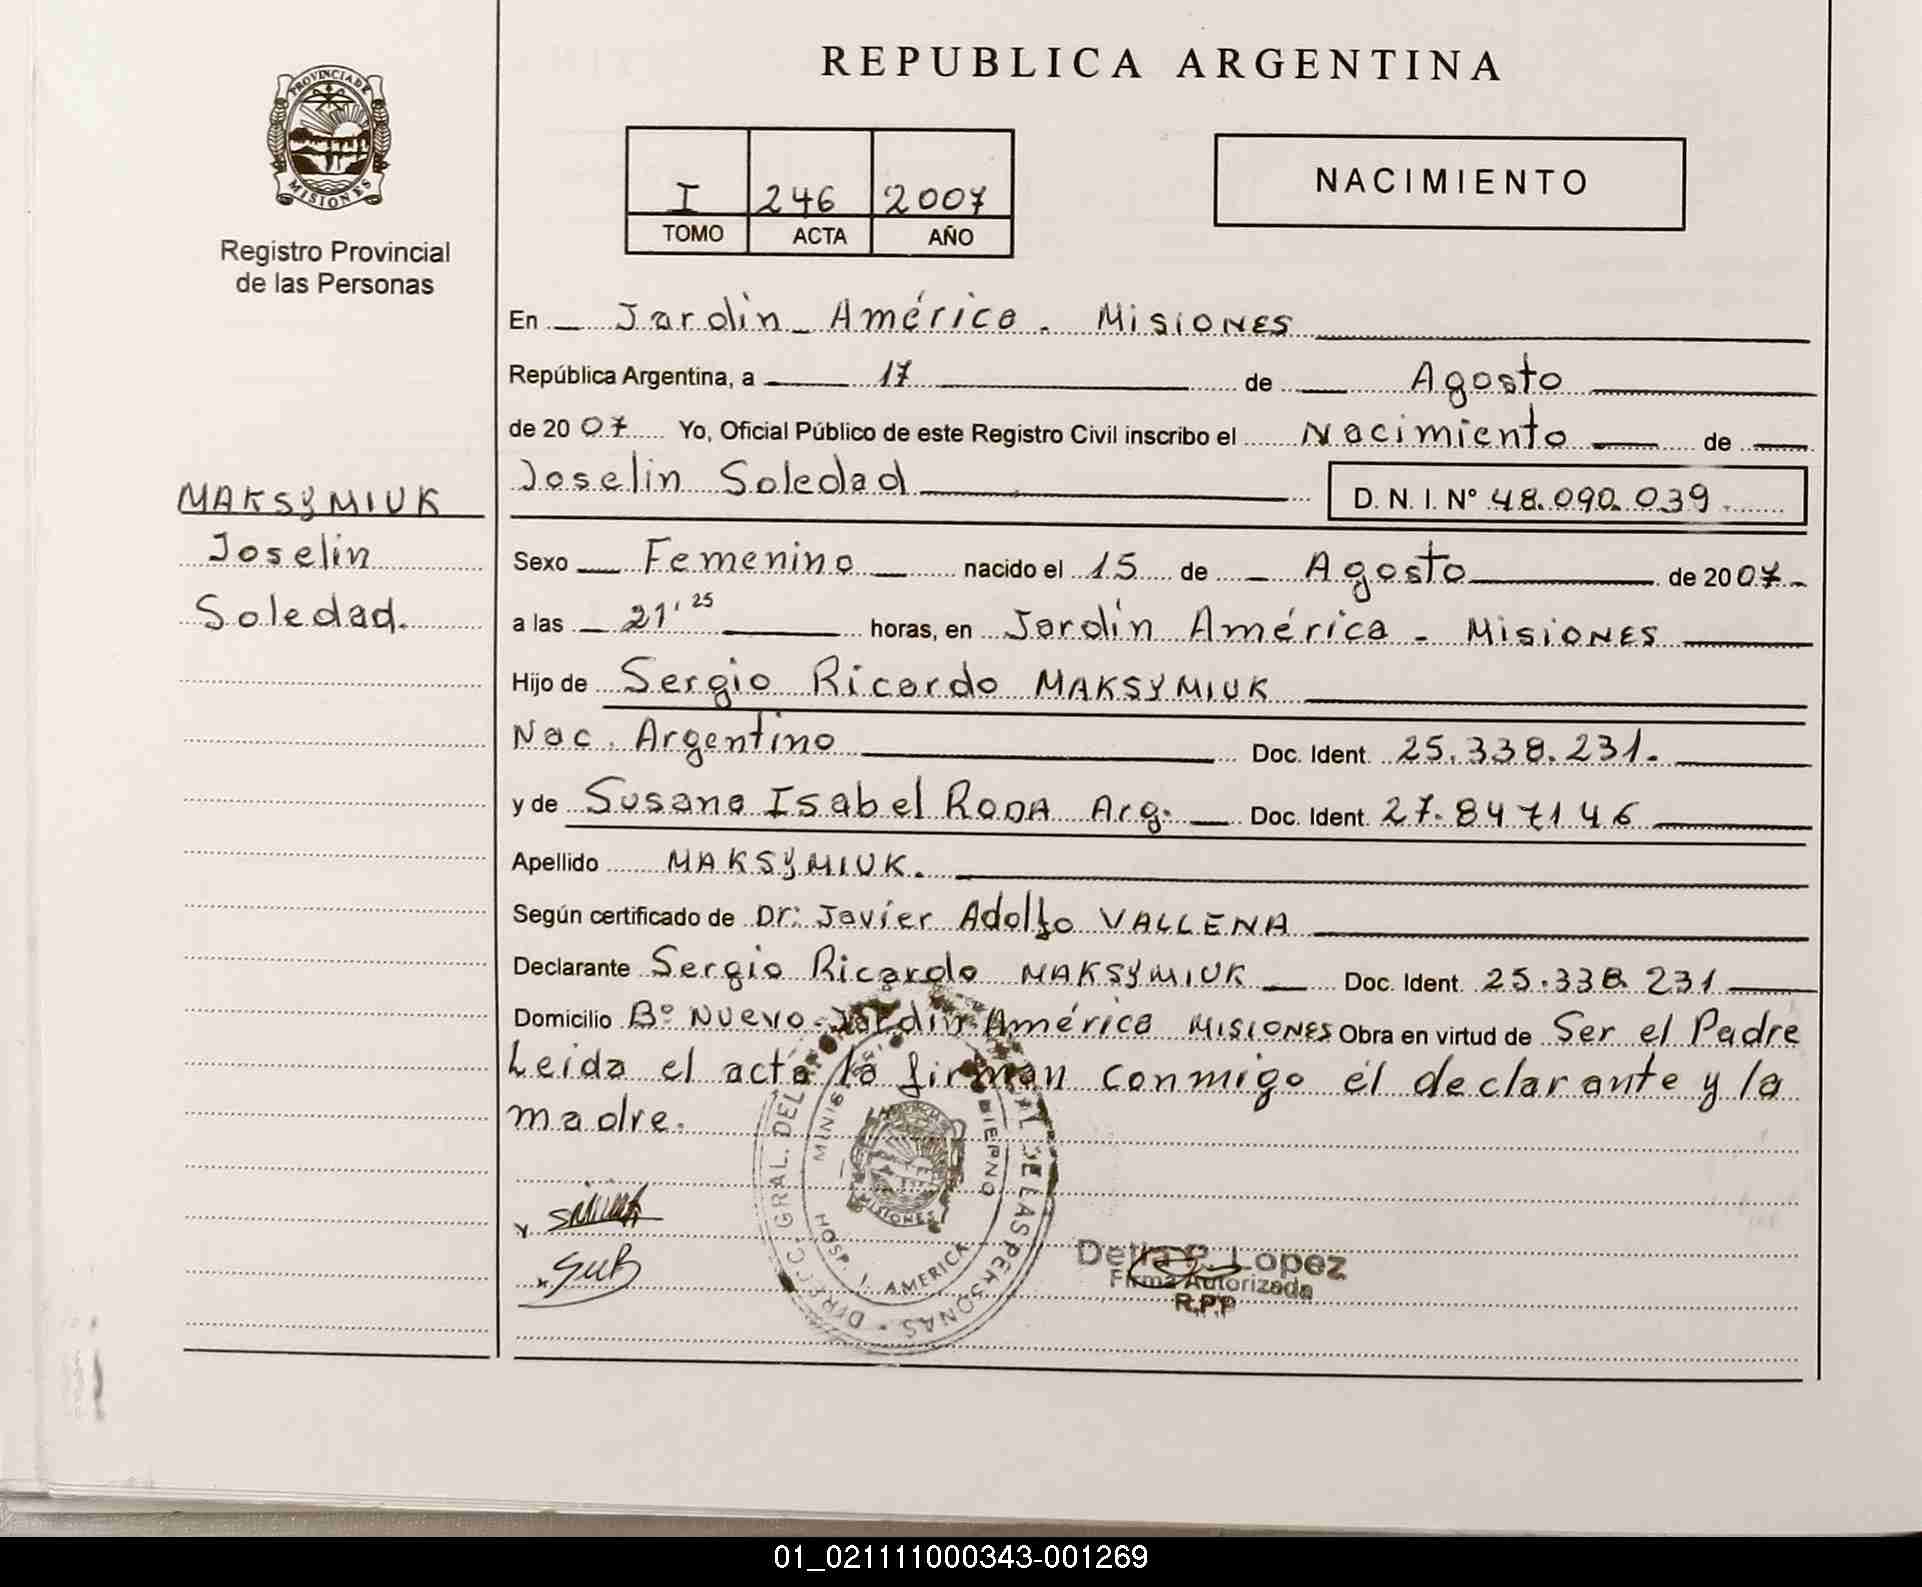 REPUBLICA ARGENTINA
PROVINCIA DE MISIONES
Registro Provincial
de las Personas
I 246 2007
TOMO ACTA AÑO
NACIMIENTO
En Jardin América. MISIONES
República Argentina, a 17 de Agosto
de 2007 Yo, Oficial Público de este Registro Civil inscribo el Nacimiento de
Joselin Soledad D. N. I. Nº 48.090.039
MAKSYMIUK
Joselin
Soledad.
Sexo Femenino nacido el 15 de Agosto de 2007
a las 21'25 horas, en Jardín América - MISIONES
Hijo de Sergio Ricardo MAKSYMIUK
Nac. Argentino Doc. Ident. 25.338.231.
y de Susana Isabel RODA Arg. Doc. Ident. 27.847146
Apellido MAKSYMIUK.
Según certificado de Dr: Javier Adolfo VALLENA
Declarante Sergio Ricardo MAKSYMIUK Doc. Ident. 25.338 231
Domicilio Bº NUEVO-Jardin América MISIONES Obra en virtud de Ser el Padre
Leida el acta la firman conmigo él declarante y la
madre.
HOSP. J. AMERICA
MISIONES
Delia R. Lopez
Firma Autorizada
R.P.P
01_021111000343-001269